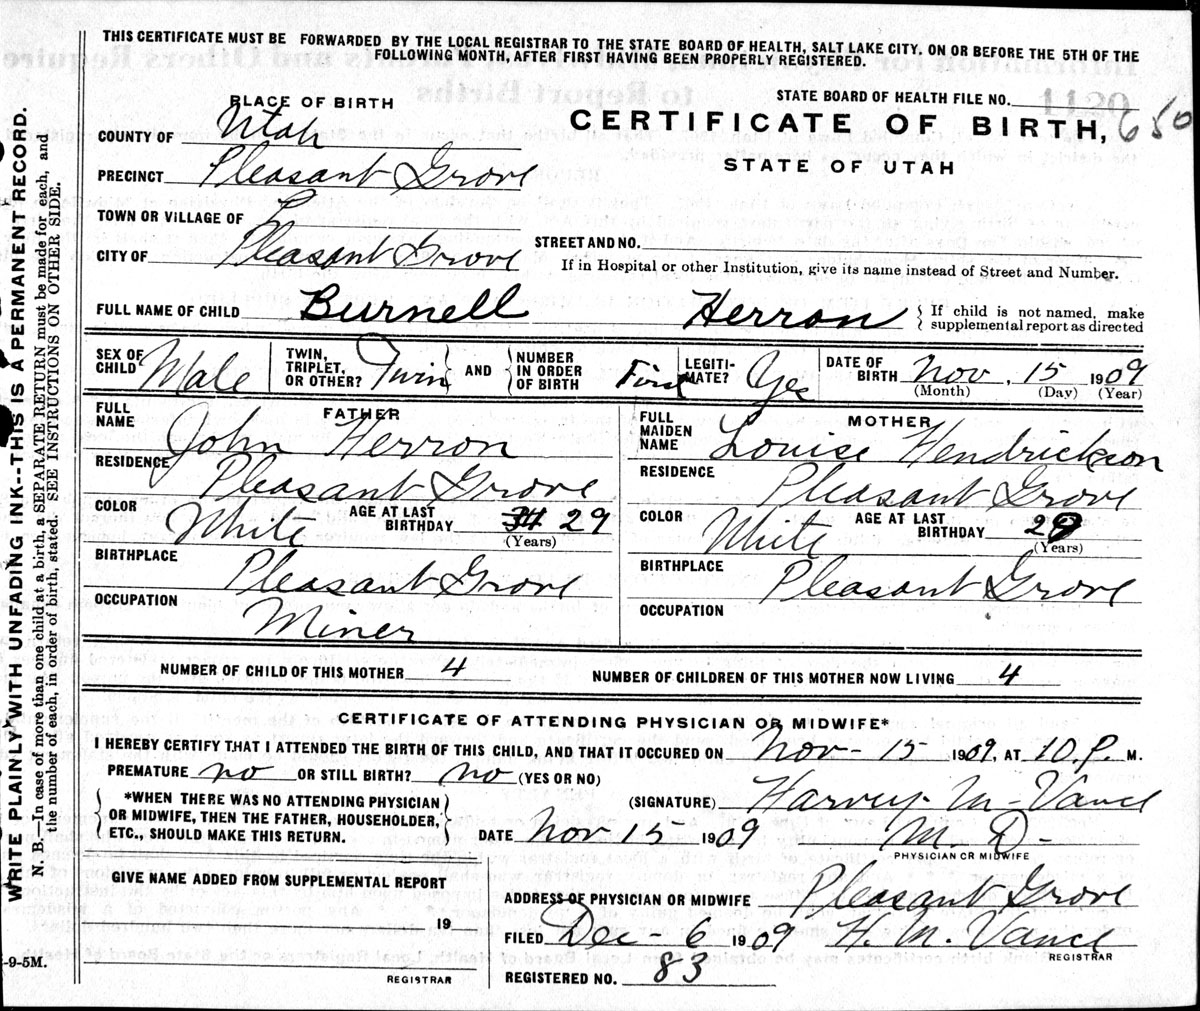 THIS CERTIFICATE MUST BE FORWARDED BY THE LOCAL REGISTRAR TO THE STATE BOARD OF HEALTH, SALT LAKE CITY, ON OR BEFORE THE 5TH OF THE
FOLLOWING MONTH, AFTER FIRST HAVING BEEN PROPERLY REGISTERED.
WRITE PLAINLY WITH UNFADING INK--THIS IS A PERMANENT RECORD.
N. B.—In case of more than one child at a birth, a SEPARATE RETURN must be made for each, and
the number of each, in order of birth, stated. SEE INSTRUCTIONS ON OTHER SIDE.
PLACE OF BIRTH
STATE BOARD OF HEALTH FILE NO.
COUNTY OF Utah
CERTIFICATE OF BIRTH, 650
STATE OF UTAH
PRECINCT Pleasant Grove
TOWN OR VILLAGE OF
CITY OF Pleasant Grove
STREET AND NO.
If in Hospital or other Institution, give its name instead of Street and Number.
FULL NAME OF CHILD Burnell Herron { If child is not named, make
supplemental report as directed
SEX OF CHILD Male TWIN, TRIPLET, OR OTHER? Twin AND NUMBER IN ORDER OF BIRTH First LEGITI-MATE? Yes DATE OF BIRTH Nov, 15 1909
(Month) (Day) (Year)
FATHER
FULL NAME John Herron
RESIDENCE Pleasant Grove
COLOR White AGE AT LAST BIRTHDAY 34 29
(Years)
BIRTHPLACE Pleasant Grove
OCCUPATION Miner
MOTHER
FULL MAIDEN NAME Louise Hendrickson
RESIDENCE Pleasant Grove
COLOR White AGE AT LAST BIRTHDAY
(Years)
BIRTHPLACE Pleasant Grove
OCCUPATION
NUMBER OF CHILD OF THIS MOTHER 4 NUMBER OF CHILDREN OF THIS MOTHER NOW LIVING 4
CERTIFICATE OF ATTENDING PHYSICIAN OR MIDWIFE*
I HEREBY CERTIFY THAT I ATTENDED THE BIRTH OF THIS CHILD, AND THAT IT OCCURED ON Nov - 15 1909, AT 10.P. M.
PREMATURE no OR STILL BIRTH? no (YES OR NO)
*WHEN THERE WAS NO ATTENDING PHYSICIAN
OR MIDWIFE, THEN THE FATHER, HOUSEHOLDER,
ETC., SHOULD MAKE THIS RETURN.
(SIGNATURE) Harvey. M - Vance
DATE Nov 15 1909 M. D -
PHYSICIAN OR MIDWIFE
GIVE NAME ADDED FROM SUPPLEMENTAL REPORT
19
REGISTRAR
ADDRESS OF PHYSICIAN OR MIDWIFE Pleasant Grove
FILED Dec - 6 1909 H. M. Vance
REGISTRAR
REGISTERED NO. 83
-9-5M.